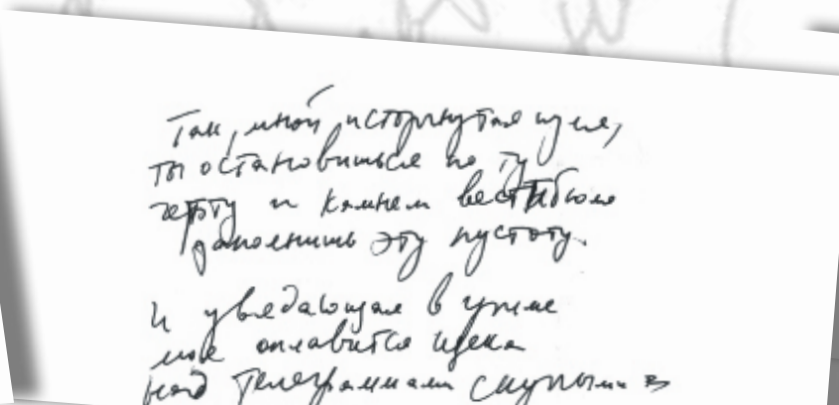 Так, мной исторгнутая из уже,
ты остановишься по ту
черту и камнем вестибюля
заполнишь эту пустоту.
И увядающая в
моя оплавится щека
над телеграммами скупыми в